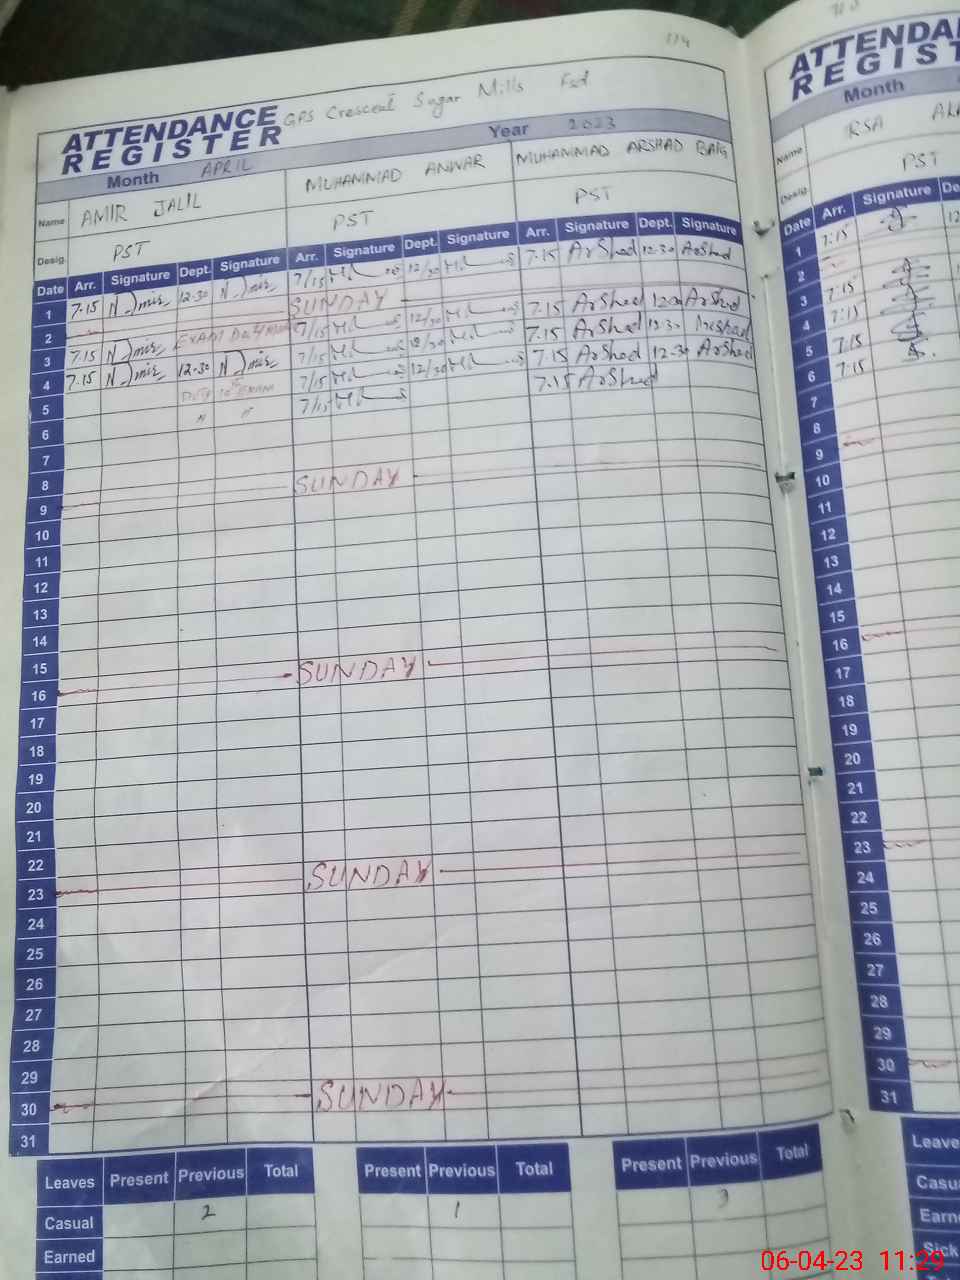 114
ATTENDANCE REGISTER GPS Crescent Sugar Mills Fsd
Month APRIL Year 2023
Name AMIR JALIL MUHAMMAD ANWAR MUHAMMAD ARSHAD BAIG
Desig. PST PST PST
Date Arr. Signature Dept. Signature Arr. Signature Dept. Signature Arr. Signature Dept. Signature
1 7.15 12.30 7/15 12/30 7.15 Arshad 12.30 Arshad
2 SUNDAY
3 7.15 7/15 12/30 7.15 Arshad Arshad
4 7.15 12.30 7/15 12/30 7.15 Arshad 12.30 Arshad
5 7/15 12/30 7.15 Arshad 12.30 Arshad
6 7/15 7.15 Arshad
7
8
9 SUNDAY
10
11
12
13
14
15
16 SUNDAY
17
18
19
20
21
22
23 SUNDAY
24
25
26
27
28
29
30 SUNDAY
31
Leaves Present Previous Total Present Previous Total Present Previous Total
Casual 2 1 3
Earned
ATTENDA
REGIST
Month
Name
Desig. PST
Date Arr. Signature De
1 7:15 12
2
3 7:15
4 7:15
5 7:15
6 7:15
7
8
9
10
11
12
13
14
15
16
17
18
19
20
21
22
23
24
25
26
27
28
29
30
31
Leave
Casu
Earn
Sick
06-04-23 11:29